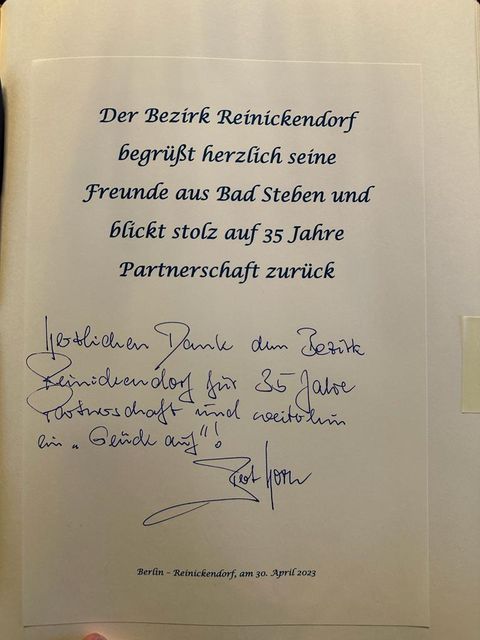 Der Bezirk Reinickendorf
begrüßt herzlich seine
Freunde aus Bad Steben und
blickt stolz auf 35 Jahre
Partnerschaft zurück
Herzlichen Dank dem Bezirk
Reinickendorf für 35 Jahre
Partnerschaft und weiterhin
ein „Glück auf"!
Horn
Berlin – Reinickendorf, am 30. April 2023